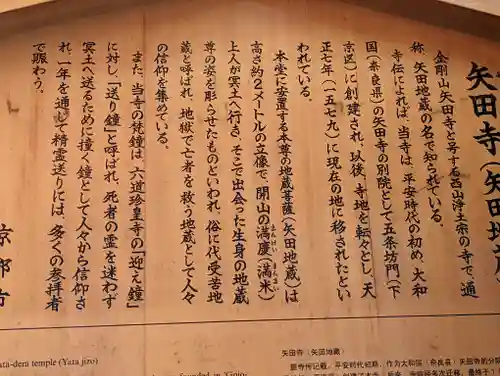 矢田寺（矢田地蔵）
金剛山矢田寺と号する西山浄土宗の寺で、通
称、矢田地蔵の名で知られている。
寺伝によれば、当寺は、平安時代の初め、大和
国（奈良県）の矢田寺の別院として五条坊門（下
京区）に創建され、以後、寺地を転々とし、天
正七年（一五七九）に現在の地に移されたとい
われている。
本堂に安置する本尊の地蔵菩薩（矢田地蔵）は
高さ約２メートルの立像で、開山の満慶（満米）
まんけい
まんまい
上人が冥土へ行き、そこで出会った生身の地蔵
尊の姿を彫らせたものといわれ、俗に代受苦地
蔵と呼ばれ、地獄で亡者を救う地蔵として人々
の信仰を集めている。
また、当寺の梵鐘は、六道珍皇寺の「迎え鐘」
に対し、「送り鐘」と呼ばれ、死者の霊を迷わず
冥土へ送るために撞く鐘として人々から信仰さ
れ、一年を通して精霊送りには、多くの参拝者
で賑わう。
京都市
ata-dera temple (Yata jizo)
矢田寺（矢田地藏）